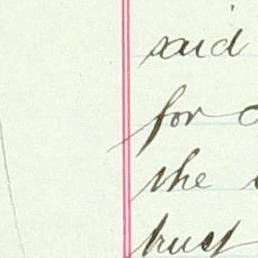 said
for
the
trust